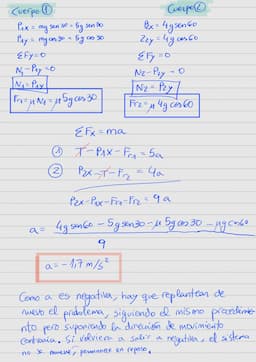 Cuerpo ①
P1x = mg sen 30 = 5g sen 30
P1y = mg cos 30 = 5g cos 30
ΣFy = 0
N1 - P1y = 0
N1 = P1y
Fr1 = μ N1 = μ 5g cos 30
Cuerpo ②
P2x = 4g sen 60
P2y = 4g cos 60
ΣFy = 0
N2 - P2y = 0
N2 = P2y
Fr2 = μ 4g cos 60
ΣFx = ma
① T - P1x - Fr1 = 5a
② P2x - T - Fr2 = 4a
P2x - P1x - Fr1 - Fr2 = 9a
a = 4g sen 60 - 5g sen 30 - μ 5g cos 30 - μ g cos 60
9
a = -1,7 m/s²
Como a es negativa, hay que replantear de
nuevo el problema, siguiendo el mismo procedimie
nto pero suponiendo la dirección de movimiento
contraria. Si volviera a salir a negativa, el sistema
no se mueve, permanece en reposo.